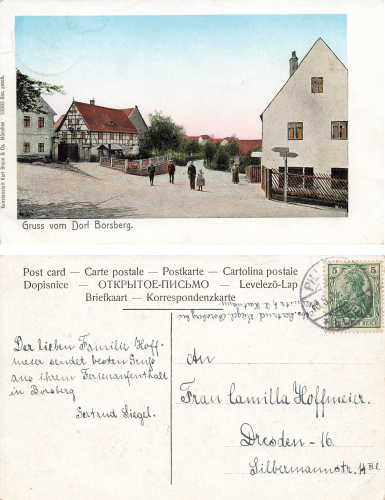 Kunstanstalt Karl Braun & Co., München
Gruss vom Dorf Borsberg.
Post card — Carte postale — Postkarte — Cartolina postale
Dopisnice — ОТКРЫТОЕ-ПИСЬМО — Levelező-Lap
Briefkaart — Korrespondenzkarte
Gertrud Siegel, Borsberg
5 5
Der lieben Familie Hoff-
meier sendet besten Gruss
aus ihrem Ferienaufenthalt
in Borsberg
Gertrud Siegel.
An
Frau Camilla Hoffmeier.
Dresden - 16.
Silbermannstr. 14 III l.